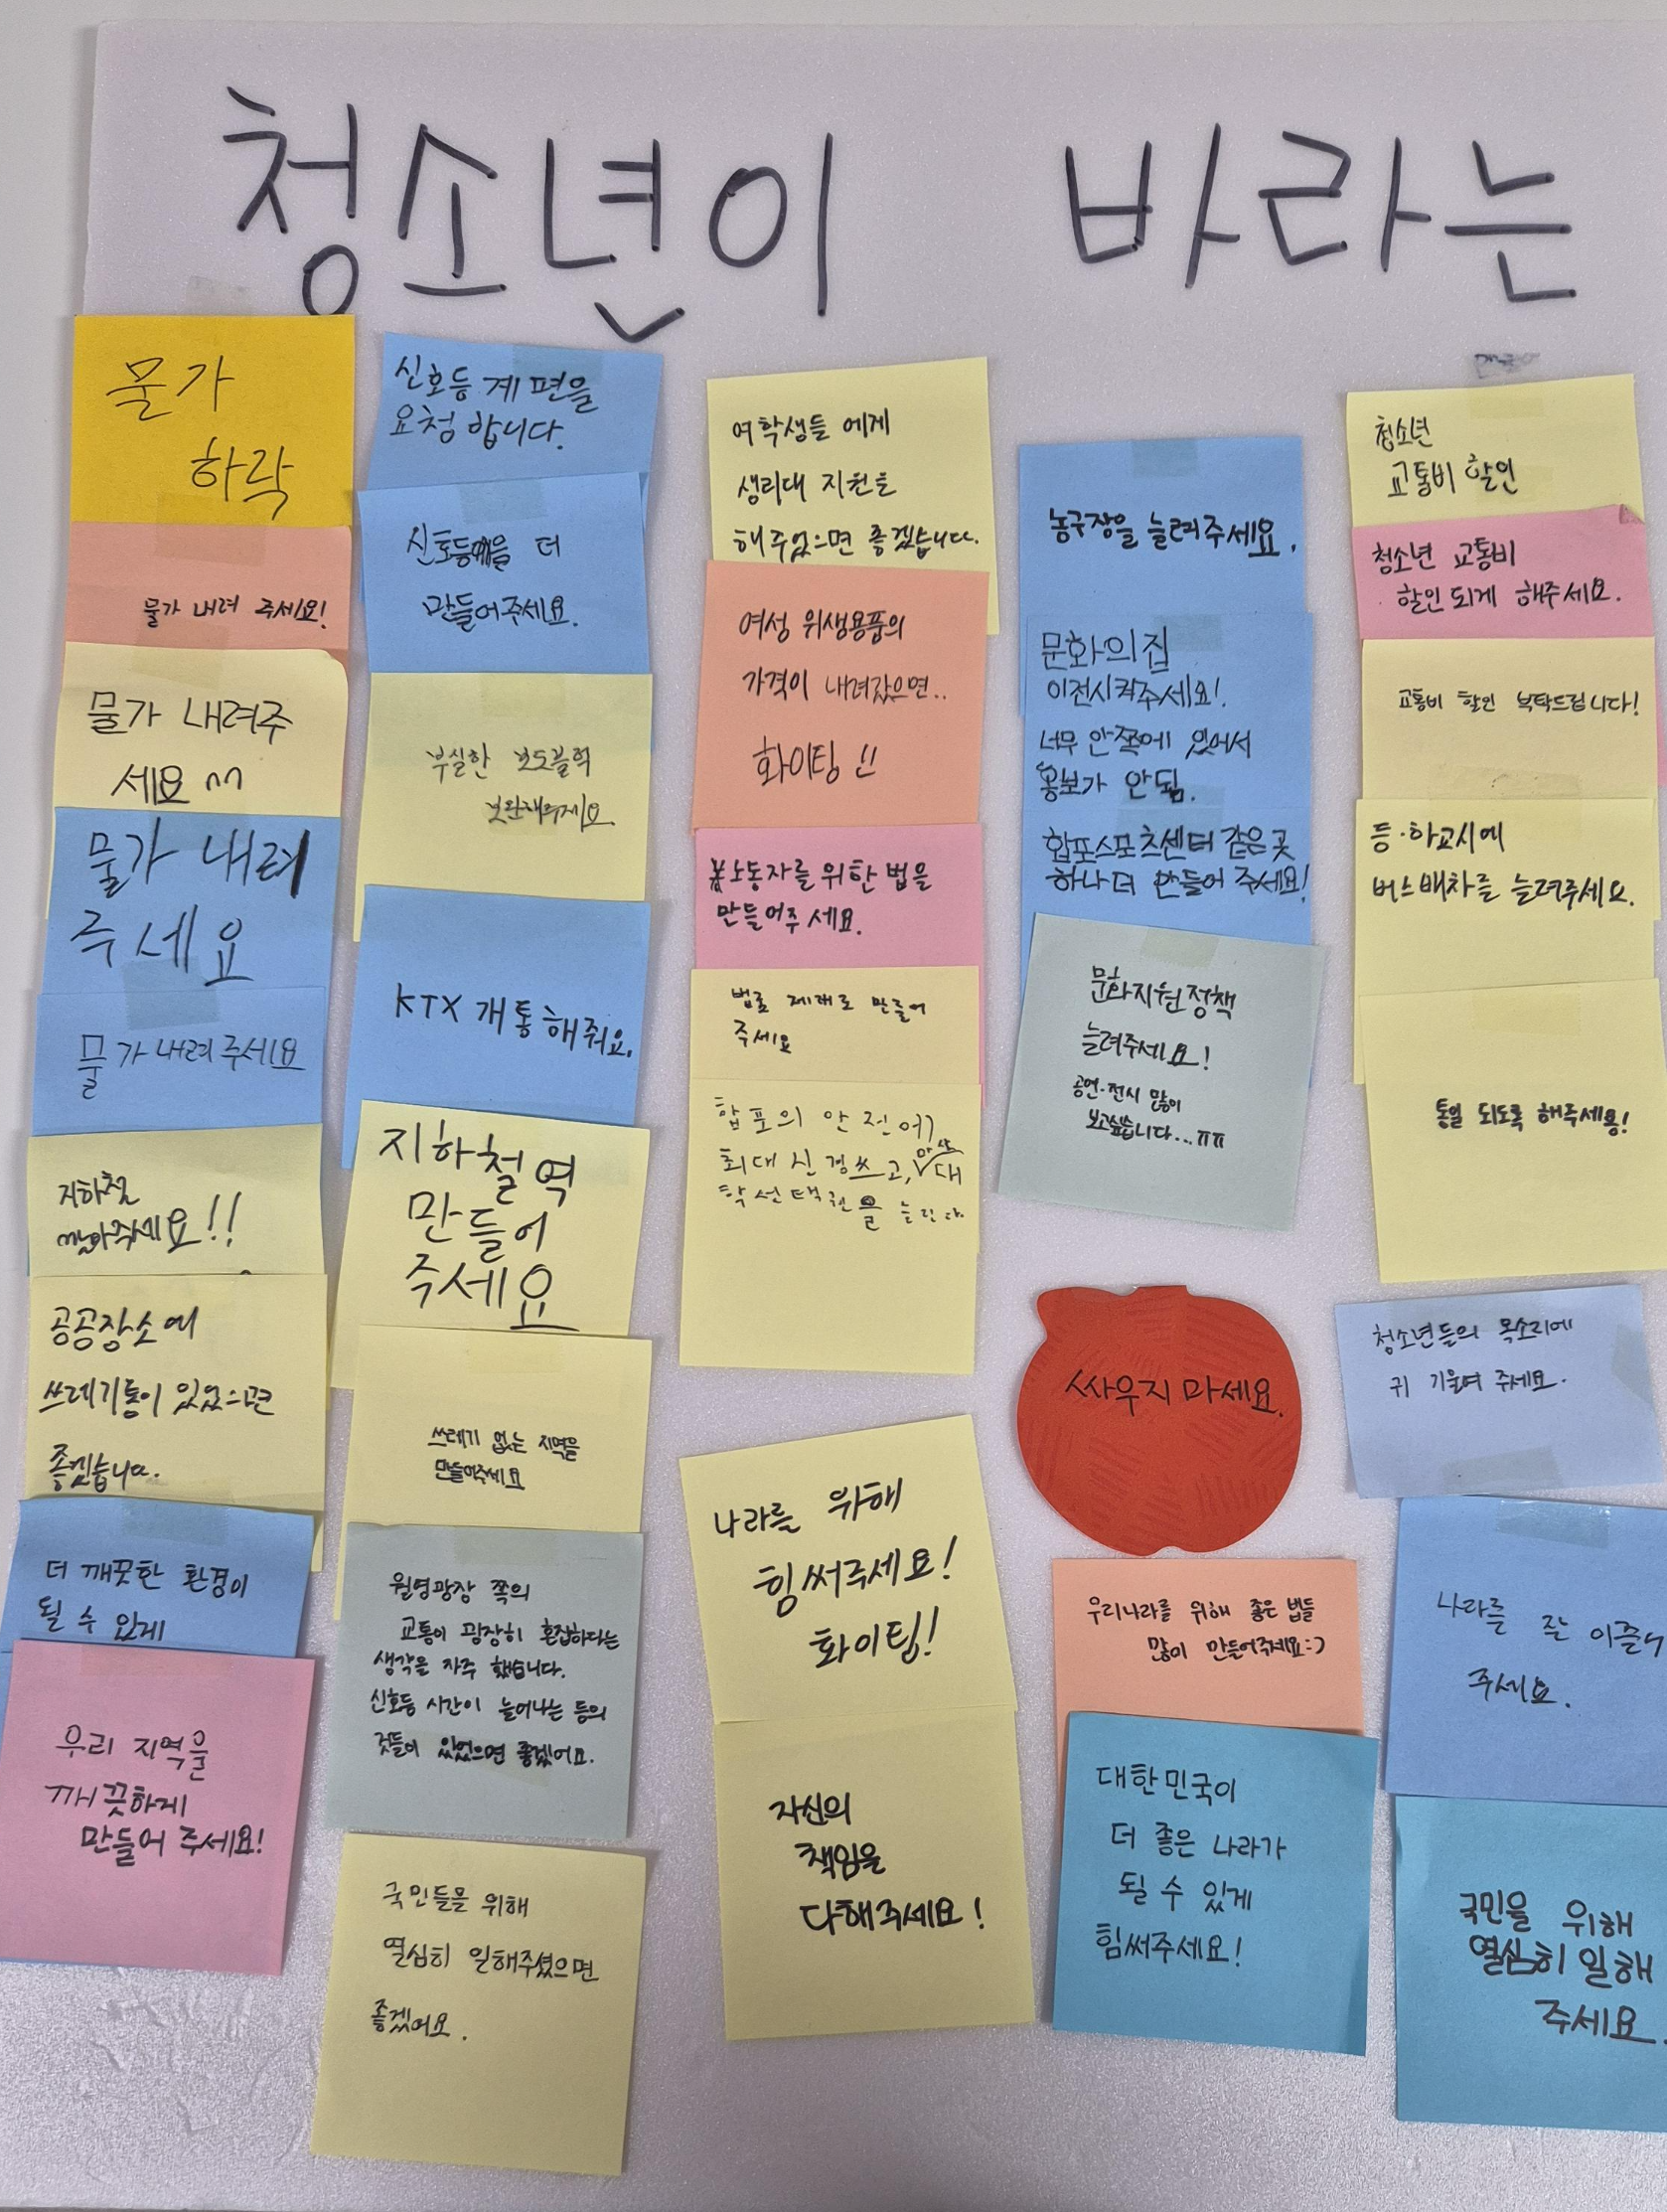 청소년이 바라는
물가
하락
물가 내려 주세요!
물가 내려주
세요 ^^
물가 내려
주세요
물가 내려주세요
지하철
깔아주세요!!
공공장소에
쓰레기통이 있었으면
좋겠습니다.
더 깨끗한 환경이
될 수 있게
우리 지역을
깨끗하게
만들어 주세요!
신호등 계편을
요청 합니다.
신호등을 더
만들어주세요.
부실한 보도블럭
보완해주세요
KTX 개통해줘요.
지하철역
만들어
주세요
쓰레기 없는 지역을
만들어주세요
월영광장 쪽의
교통이 굉장히 혼잡하다는
생각을 자주 했습니다.
신호등 시간이 늘어나는 등의
것들이 있었으면 좋겠어요.
국민들을 위해
열심히 일해주셨으면
좋겠어요.
여학생들 에게
생리대 지원을
해주었으면 좋겠습니다.
여성 위생용품의
가격이 내려갔으면..
화이팅!!
노동자를 위한 법을
만들어주세요.
법을 제대로 만들어
주세요
합포의 안전에
최대 신경쓰고, 마산 대
학선택권을 늘린다.
나라를 위해
힘써주세요!
화이팅!
자신의
책임을
다해주세요!
농구장을 늘려주세요.
문화의집
이전시켜주세요!
너무 안쪽에 있어서
홍보가 안됨.
합포스포츠센터 같은 곳
하나 더 만들어 주세요!
문화지원정책
늘려주세요!
공연·전시 많이
보고싶습니다...ㅠㅠ
싸우지 마세요.
우리나라를 위해 좋은 법들
많이 만들어주세요:)
대한민국이
더 좋은 나라가
될 수 있게
힘써주세요!
청소년
교통비 할인
청소년 교통비
할인되게 해주세요.
교통비 할인 부탁드립니다!
등·하교시에
버스배차를 늘려주세요.
통일 되도록 해주세용!
청소년들의 목소리에
귀 기울여 주세요.
나라를 잘
주세요.
국민을 위해
열심히 일해
주세요.